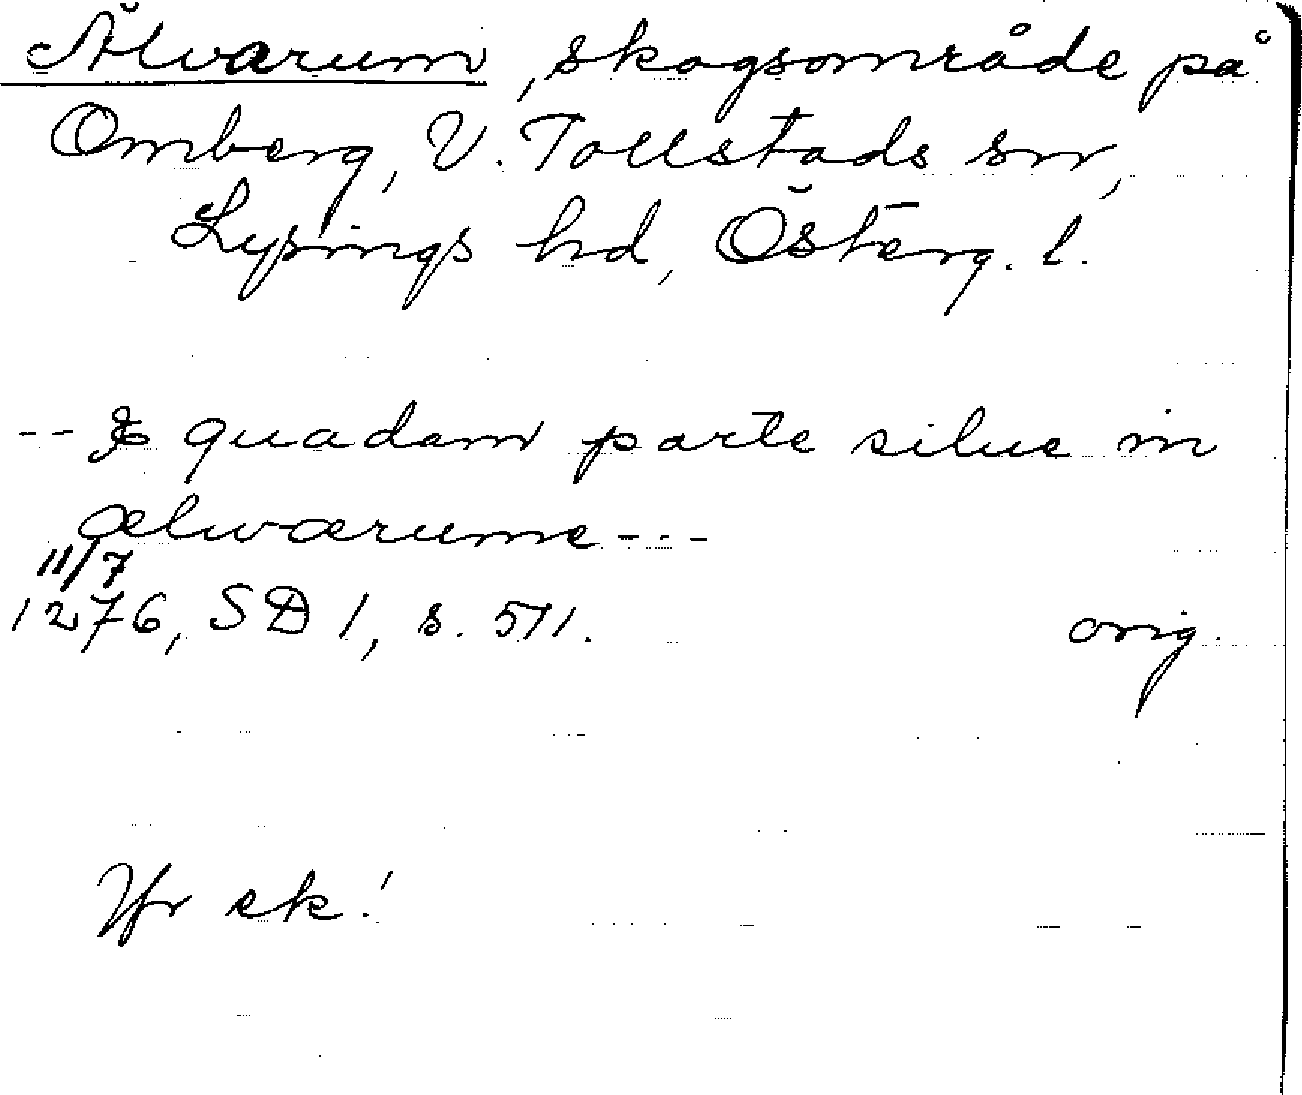 Älvarum, skogsområde på
Omberg, V. Tollstads sn,
Lysings hd, Österg. l.
-- & quadam parte silue in
ælwærume ---
11/7
1276, SD 1, s. 511. orig.
Jfr ek!